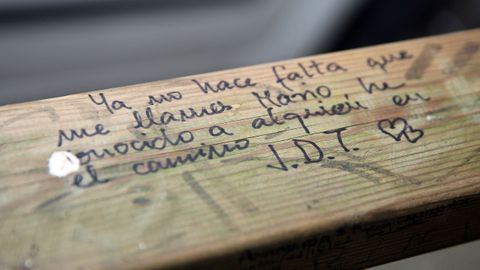 Ya no hace falta que
me llames Mano he
conocido a alguien en
el camino J.D.T.